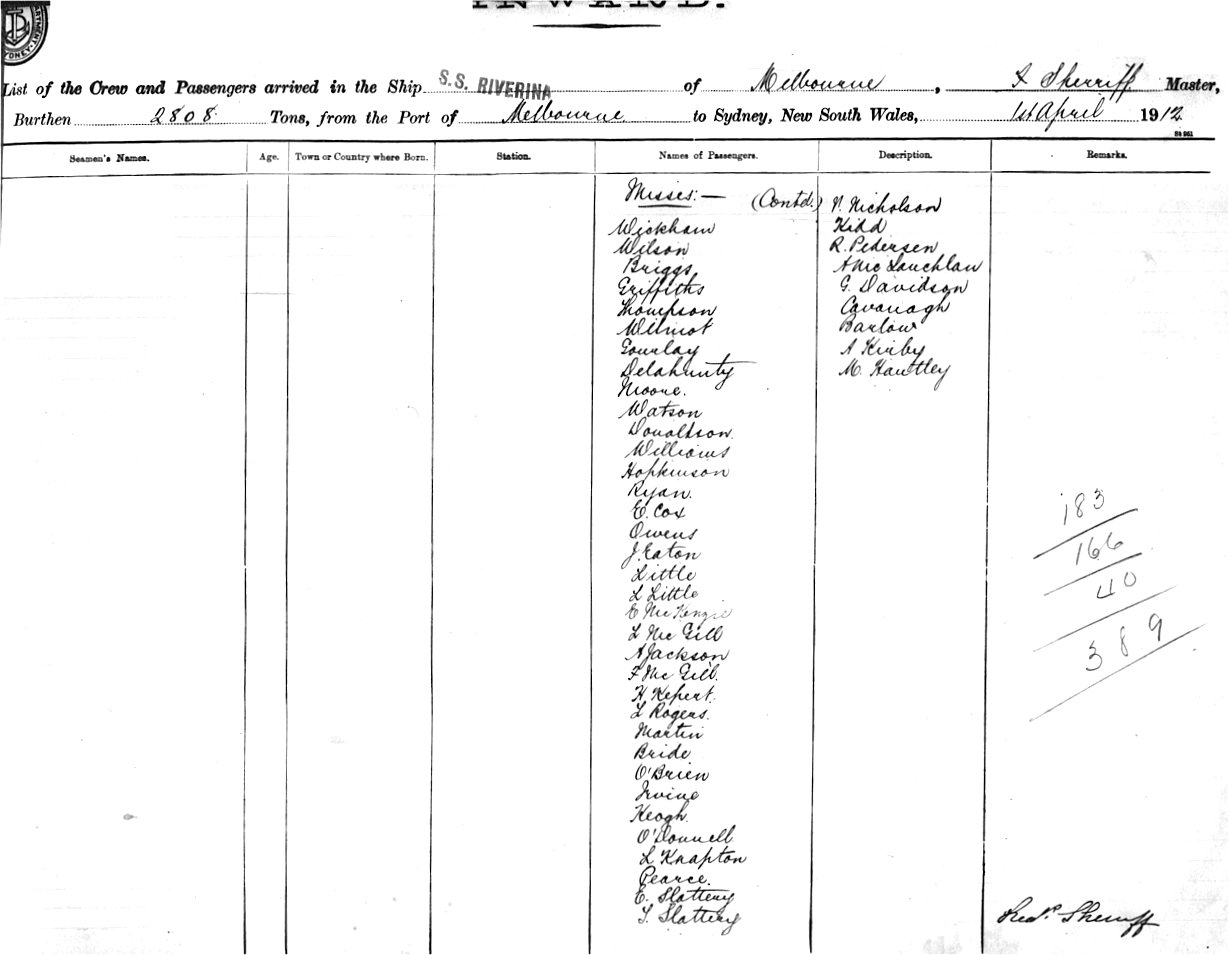 INWARD.
List of the Crew and Passengers arrived in the Ship S.S. RIVERINA of Melbourne, F Sherriff Master,
Burthen 2808 Tons, from the Port of Melbourne to Sydney, New South Wales, 1st April 1912
Seamen's Names. Age. Town or Country where Born. Station. Names of Passengers. Description. Remarks.
Misses:— (Contd.)
Wickham
Wilson
Briggs
Griffiths
Thompson
Wilmot
Gourlay
Delahunty
Moore.
Watson
Donaldson.
Williams
Hopkinson
Ryan.
E. Cox
Owens
J. Eaton
Little
L Little
E McKenzie
L McGill
A Jackson
F McGill.
H Kepert.
L Rogers.
Martin
Bride
O'Brien
Irvine
Keogh.
O'Donnell
L Knapton
Pearce.
E. Slattery
T. Slattery
N. Nicholson
Kidd
R. Pedersen
A McLauchlan
G. Davidson
Cavanagh
Barlow
A Kirby
M. Hautley
183
166
40
389
Fredk. Sherriff